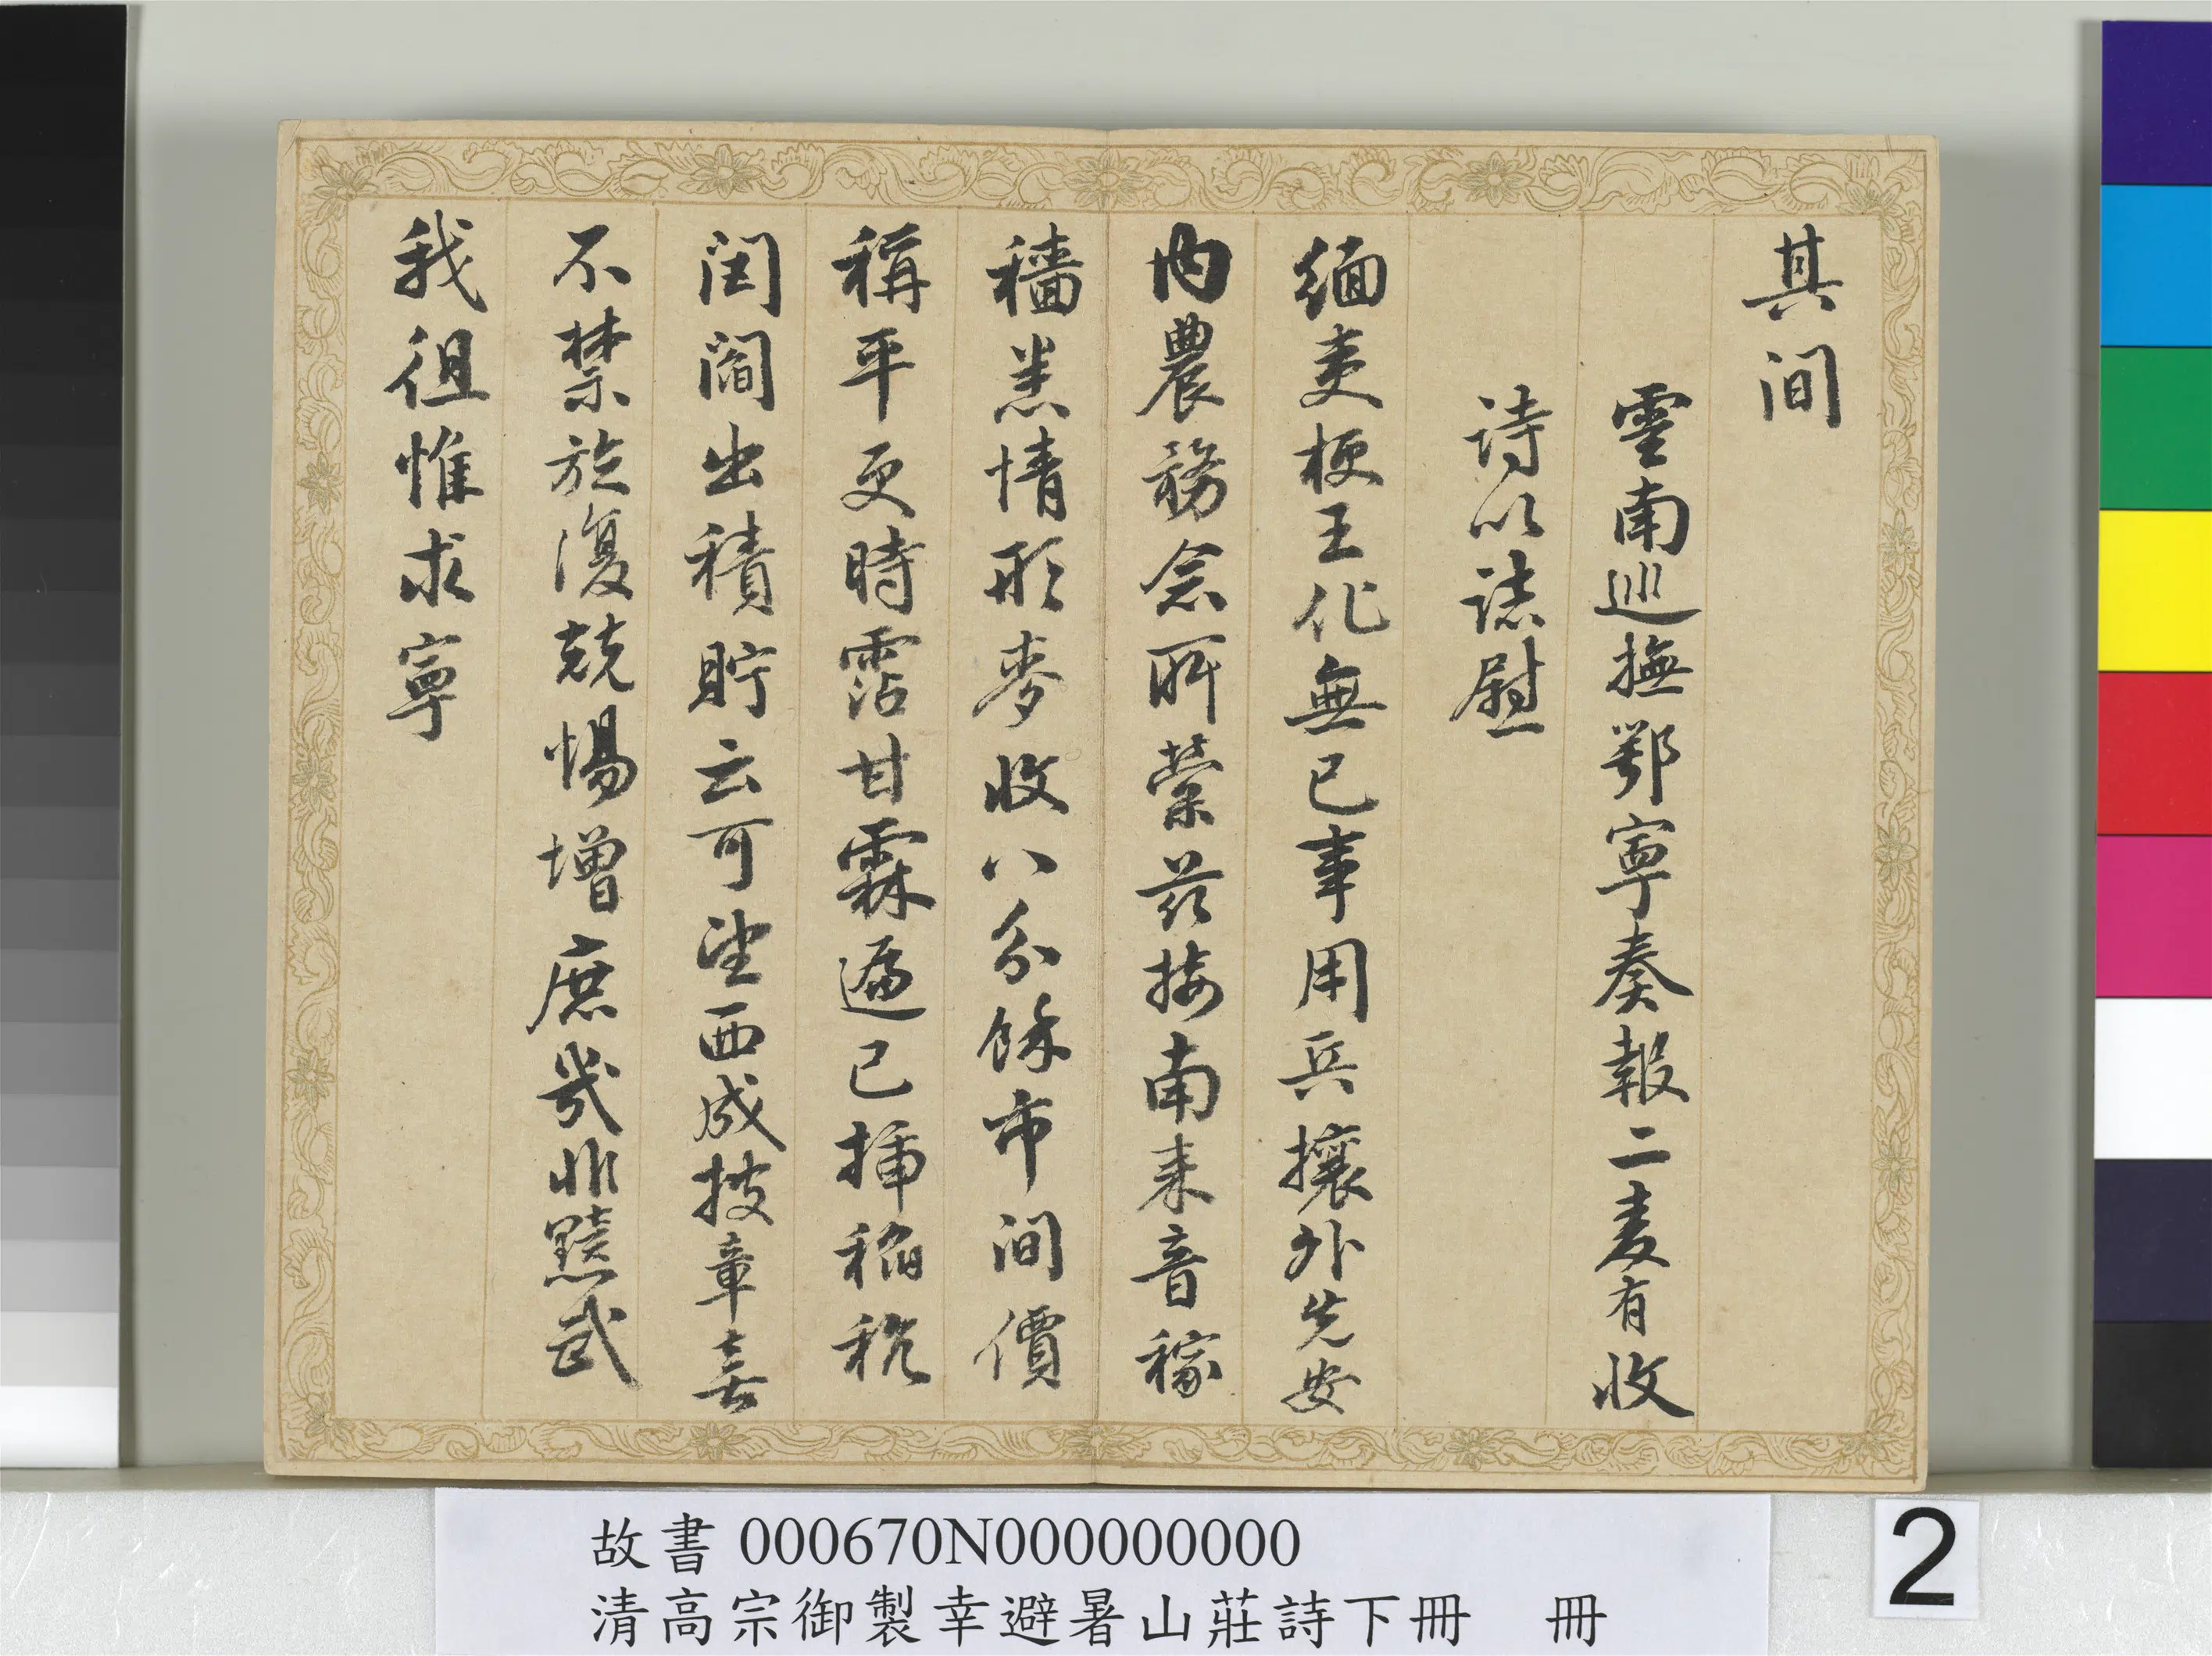 其間
雲南巡撫鄂寧奏報二麥有收
詩以誌慰
緬夷梗王化無已事用兵攘外先安
內農務念所縈茲接南來音稼
穡悉情形麥收八分餘市間價
稱平更時霑甘霖遍已插稻秔
閭閻出積貯云可望西成披章喜
不禁旋復兢惕增庶幾非黷武
我徂惟求寧
故書 000670N000000000
清高宗御製幸避暑山莊詩下冊 冊
2